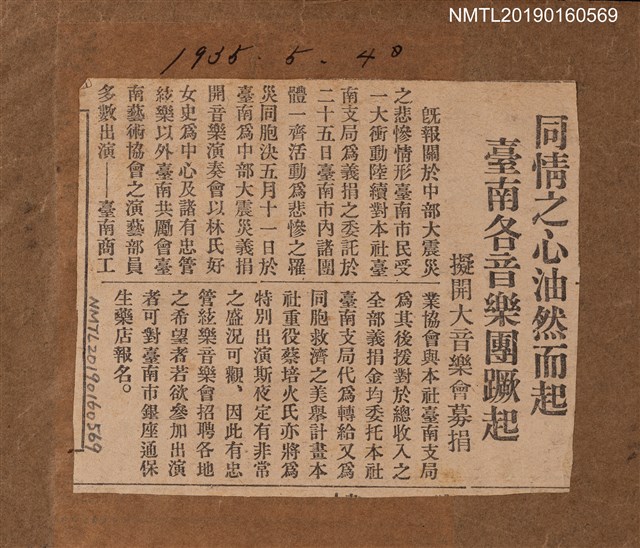 NMTL20190160569
1935. 5. 4日
同情之心油然而起
臺南各音樂團蹶起
擬開大音樂會募捐
旣報關於中部大震災
之悲慘情形臺南市民受
一大衝動陸續對本社臺
南支局爲義捐之委託於
二十五日臺南市內諸團
體一齊活動爲悲慘之罹
災同胞決五月十一日於
臺南爲中部大震災義捐
開音樂演奏會以林氏好
女史爲中心及諸有忠管
絃樂以外臺南共勵會臺
南藝術協會之演藝部員
多數出演——臺南商工
業協會與本社臺南支局
爲其後援對於總收入之
全部義捐金均委托本社
臺南支局代爲轉給又爲
同胞救濟之美擧計畫本
社重役蔡培火氏亦將爲
特別出演斯夜定有非常
之盛況可觀、因此有忠
管絃樂音樂會招聘各地
之希望者若欲參加出演
者可對臺南市銀座通保
生藥店報名。
NMTL20190160569